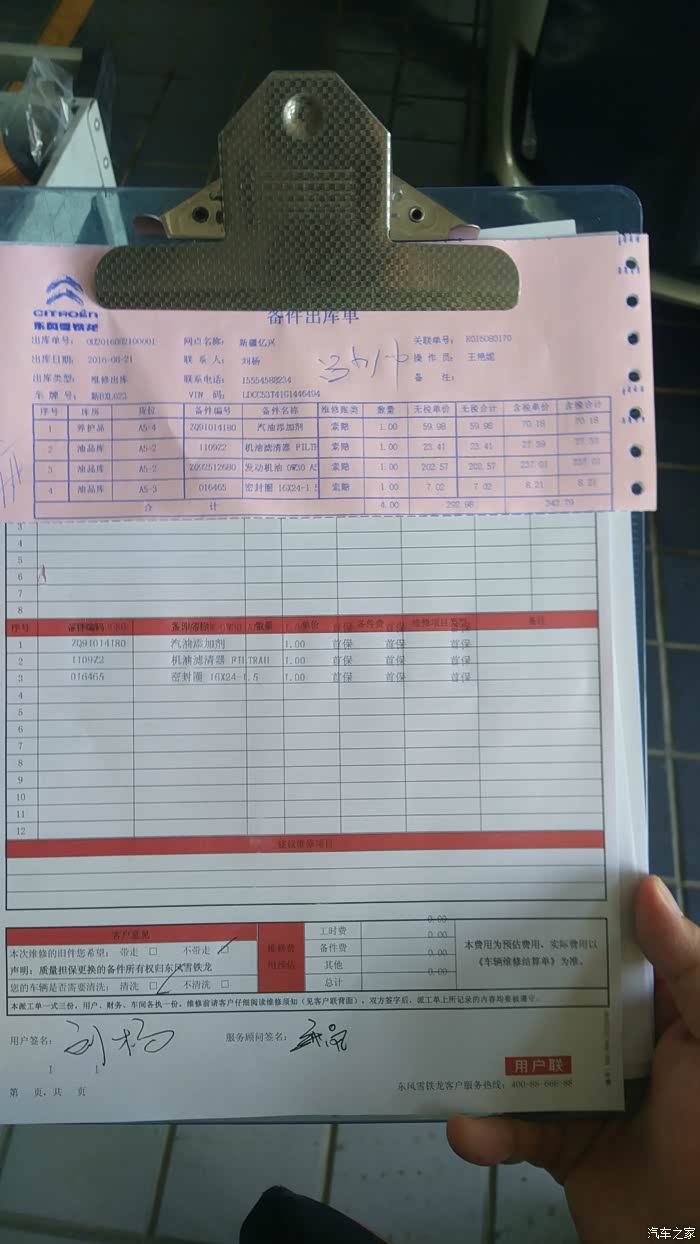 CITROËN
东风雪铁龙
备件出库单
出库单号: 002016082100001 网点名称: 新疆亿兴 关联单号: R016080170
出库日期: 2016-08-21 联系人: 刘杨 操作员: 王艳妮
出库类型: 维修出库 联系电话: 15554588234 备注:
车牌号: VIN 码: LDCC53T41G1446494
序号 库房 货位 备件编号 备件名称 维修账类 数量 无税单价 无税合计 含税单价 含税合计
1 养护品 A5-4 ZQ91014180 汽油添加剂 索赔 1.00 59.98 59.98 70.18 70.18
2 油品库 A5-2 1109Z2 机油滤清器 FILTR 索赔 1.00 23.41 23.41 27.39 27.39
3 油品库 A5-2 ZQ92512680 发动机油 0W30 A5 索赔 1.00 202.57 202.57 237.01 237.01
4 油品库 A5-3 016465 密封圈 16X24-1.5 索赔 1.00 7.02 7.02 8.21 8.21
合 计 4.00 292.98 342.79
3
4
5
6
7
8
序号 备件编码 备件名称 数量 单价 备件费 维修项目类型 备注
1 ZQ91014180 汽油添加剂 1.00 首保 首保 首保
2 1109Z2 机油滤清器 FILTRAH 1.00 首保 首保 首保
3 016465 密封圈 16X24-1.5 1.00 首保 首保 首保
4
5
6
7
8
9
10
11
12
建议维修项目
客户意见 维修费用预估 工时费 0.00
本次维修的旧件您希望: 带走 □ 不带走 □ 备件费 0.00
声明: 质量担保更换的备件所有权归东风雪铁龙 其他 0.00
您的车辆是否需要清洗: 清洗 □ 不清洗 □ 总计 0.00
本费用为预估费用、实际费用以
《车辆维修结算单》为准。
本派工单一式三份, 用户、财务、车间各执一份。维修前请客户仔细阅读维修须知 (见客户联背面), 双方签字后, 派工单上所记录的内容均要被遵守。
用户签名: 刘杨 服务顾问签名:
1 1
用户联
第 页, 共 页 东风雪铁龙客户服务热线: 400-88-666-88
汽车之家